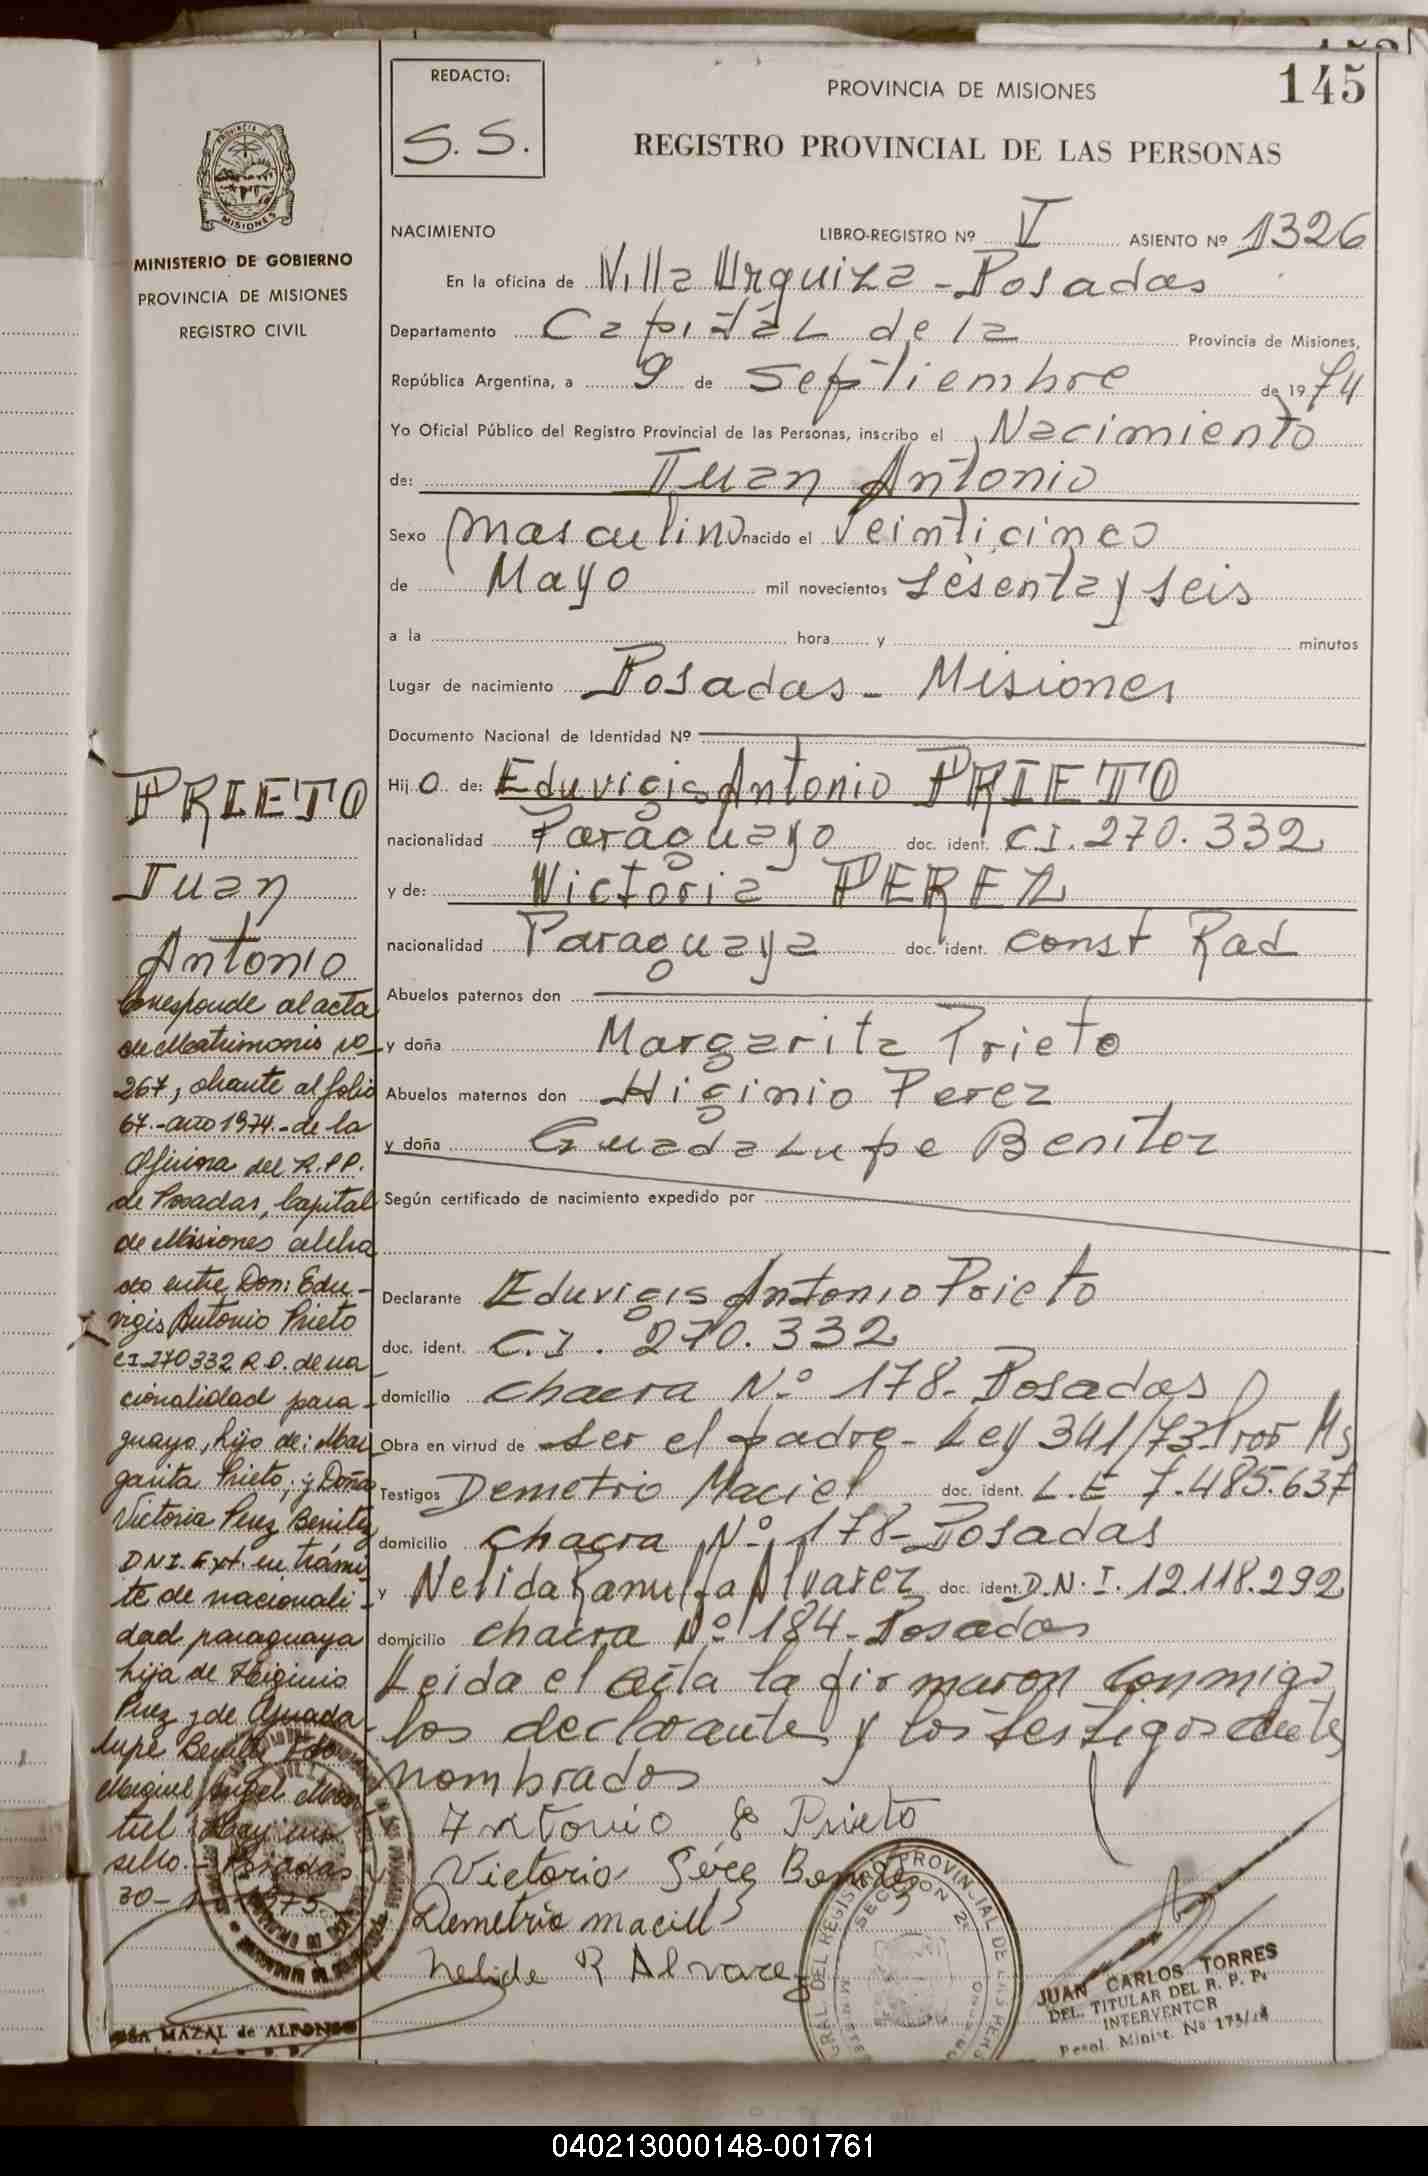 145
REDACTO:
S. S.
PROVINCIA DE MISIONES
REGISTRO PROVINCIAL DE LAS PERSONAS
MISIONES
MINISTERIO DE GOBIERNO
PROVINCIA DE MISIONES
REGISTRO CIVIL
NACIMIENTO LIBRO-REGISTRO Nº V ASIENTO Nº 1326
En la oficina de Villa Urquiza - Posadas
Departamento Capital de la Provincia de Misiones,
República Argentina, a 9 de Septiembre de 1974
Yo Oficial Público del Registro Provincial de las Personas, inscribo el Nacimiento
de: Juan Antonio
Sexo Masculino nacido el veinticinco
de Mayo mil novecientos sesenta y seis
a la hora y minutos
Lugar de nacimiento Posadas - Misiones
Documento Nacional de Identidad Nº
Hijo de: Eduvigis Antonio PRIETO
nacionalidad Paraguayo doc. ident. C.I. 270.332
y de: Victoria PEREZ
nacionalidad Paraguaya doc. ident. const Rad
Abuelos paternos don
y doña Margarita Prieto
Abuelos maternos don Higinio Perez
y doña Guadalupe Benitez
Según certificado de nacimiento expedido por
Declarante Eduvigis Antonio Prieto
doc. ident. C.I. 270.332
domicilio chacra Nº 178 - Posadas
Obra en virtud de ser el padre - Ley 341/73 Pror
Testigos Demetrio Maciel doc. ident. L.E 7.485.637
domicilio chacra Nº 178 - Posadas
y Nelida Ranulfa Alvarez doc. ident. D.N.I. 12.118.292
domicilio chacra Nº 184 - Posadas
Leida el acta la firmaron conmigo
los declarante y los testigos
nombrados
Antonio E Prieto
Victoria Pérez Benitez
Demetrio maciel
Nelide R Alvarez
PRIETO
Juan
Antonio
Corresponde al acta
de Matrimonio no
267, obrante al folio
67.- año 1974.- de la
Oficina del R.P.P.
de Posadas, Capital
de Misiones celebra
do entre Don: Edu-
vigis Antonio Prieto
C.I. 270332 R.P. de na
cionalidad para-
guayo, hijo de: Mar
garita Prieto; y Doña
Victoria Perez Benitez
DNI. Ext. en trámi
te de nacionali-
dad paraguaya
hija de Higinio
Perez y de Guada-
lupe Benitez Fdo
Miguel Angel
Hay un
sello.- Posadas
30-
MAZAL de ALFONSO
SECCION 2ª
JUAN CARLOS TORRES
DEL. TITULAR DEL R. P. P.
INTERVENTOR
Resol. Minist. No 173/74
040213000148-001761